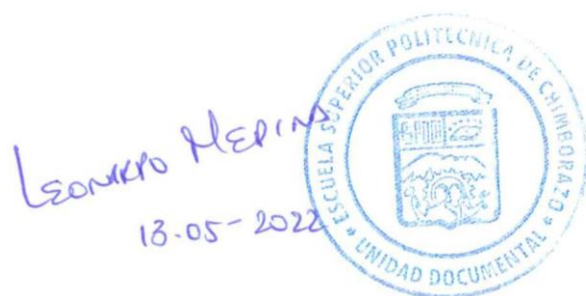 LEONARDO MEDINA
13-05-2022
ESCUELA SUPERIOR POLITECNICA DE CHIMBORAZO
* UNIDAD DOCUMENTAL *